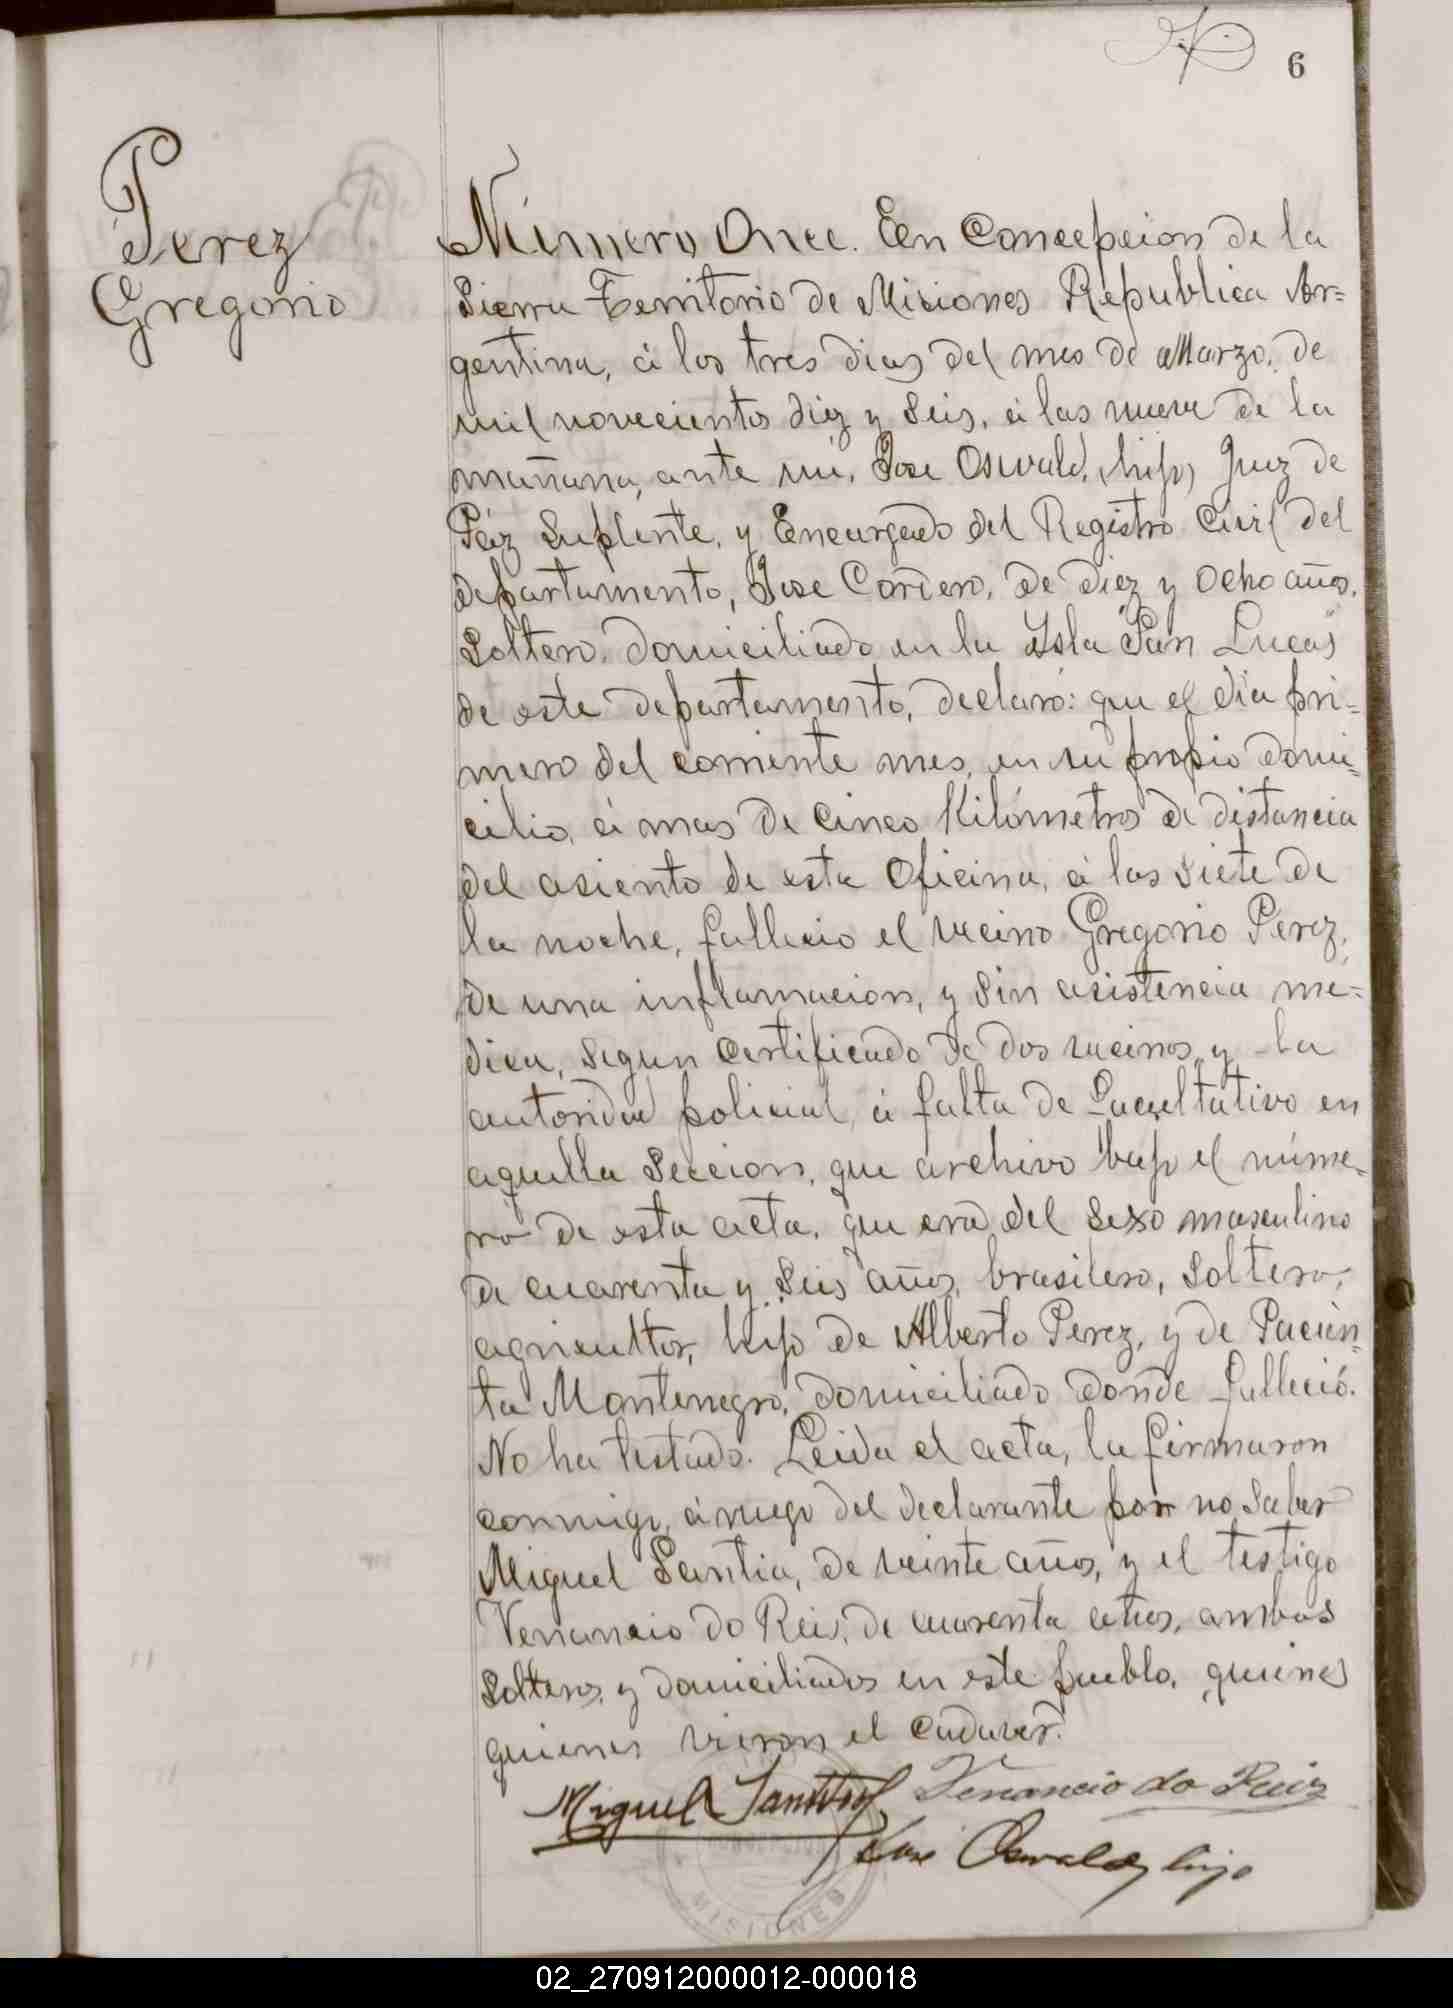 6
Perez
Gregorio
Número Once. En Concepcion de la
Sierra Territorio de Misiones Republica Ar=
gentina, á los tres dias del mes de Marzo, de
mil novecientos diez y seis, á las nueve de la
mañana, ante mi, Jose Oswald, (hijo) Juez de
Páz Suplente, y Encargado del Registro Civil del
departamento, Jose Cordero, de diez y ocho años,
soltero, domiciliado en la Isla "San Lucas"
de este departamento, declaró: que el dia pri=
mero del corriente mes, en su propio domi=
cilio, á mas de cinco Kilómetros de distancia
del asiento de esta Oficina, á las siete de
la noche, fallecio el vecino Gregorio Perez,
de una inflamacion, y sin asistencia mé=
dica, segun certificado de dos vecinos y la
autoridad policial, á falta de facultativo en
aquella Seccion, que archivo bajo el núme=
ro de esta acta, que era del sexo masculino
de cuarenta y seis años, brasilero, soltero,
agricultor, hijo de Alberto Perez, y de Pacien=
ta Montenegro, domiciliado donde falleció.
No ha testado. Leida el acta, la firmaron
conmigo, á ruego del declarante por no saber
Miguel Santia, de veinte años, y el testigo
Venancio do Reis, de cuarenta años, ambos
solteros, y domiciliados en este pueblo, quienes
quienes vieron el cadaver.
Miguel Venancio do Ruiz
Jose Oswald, hijo
CONCEPCION
MISIONES
02_270912000012-000018